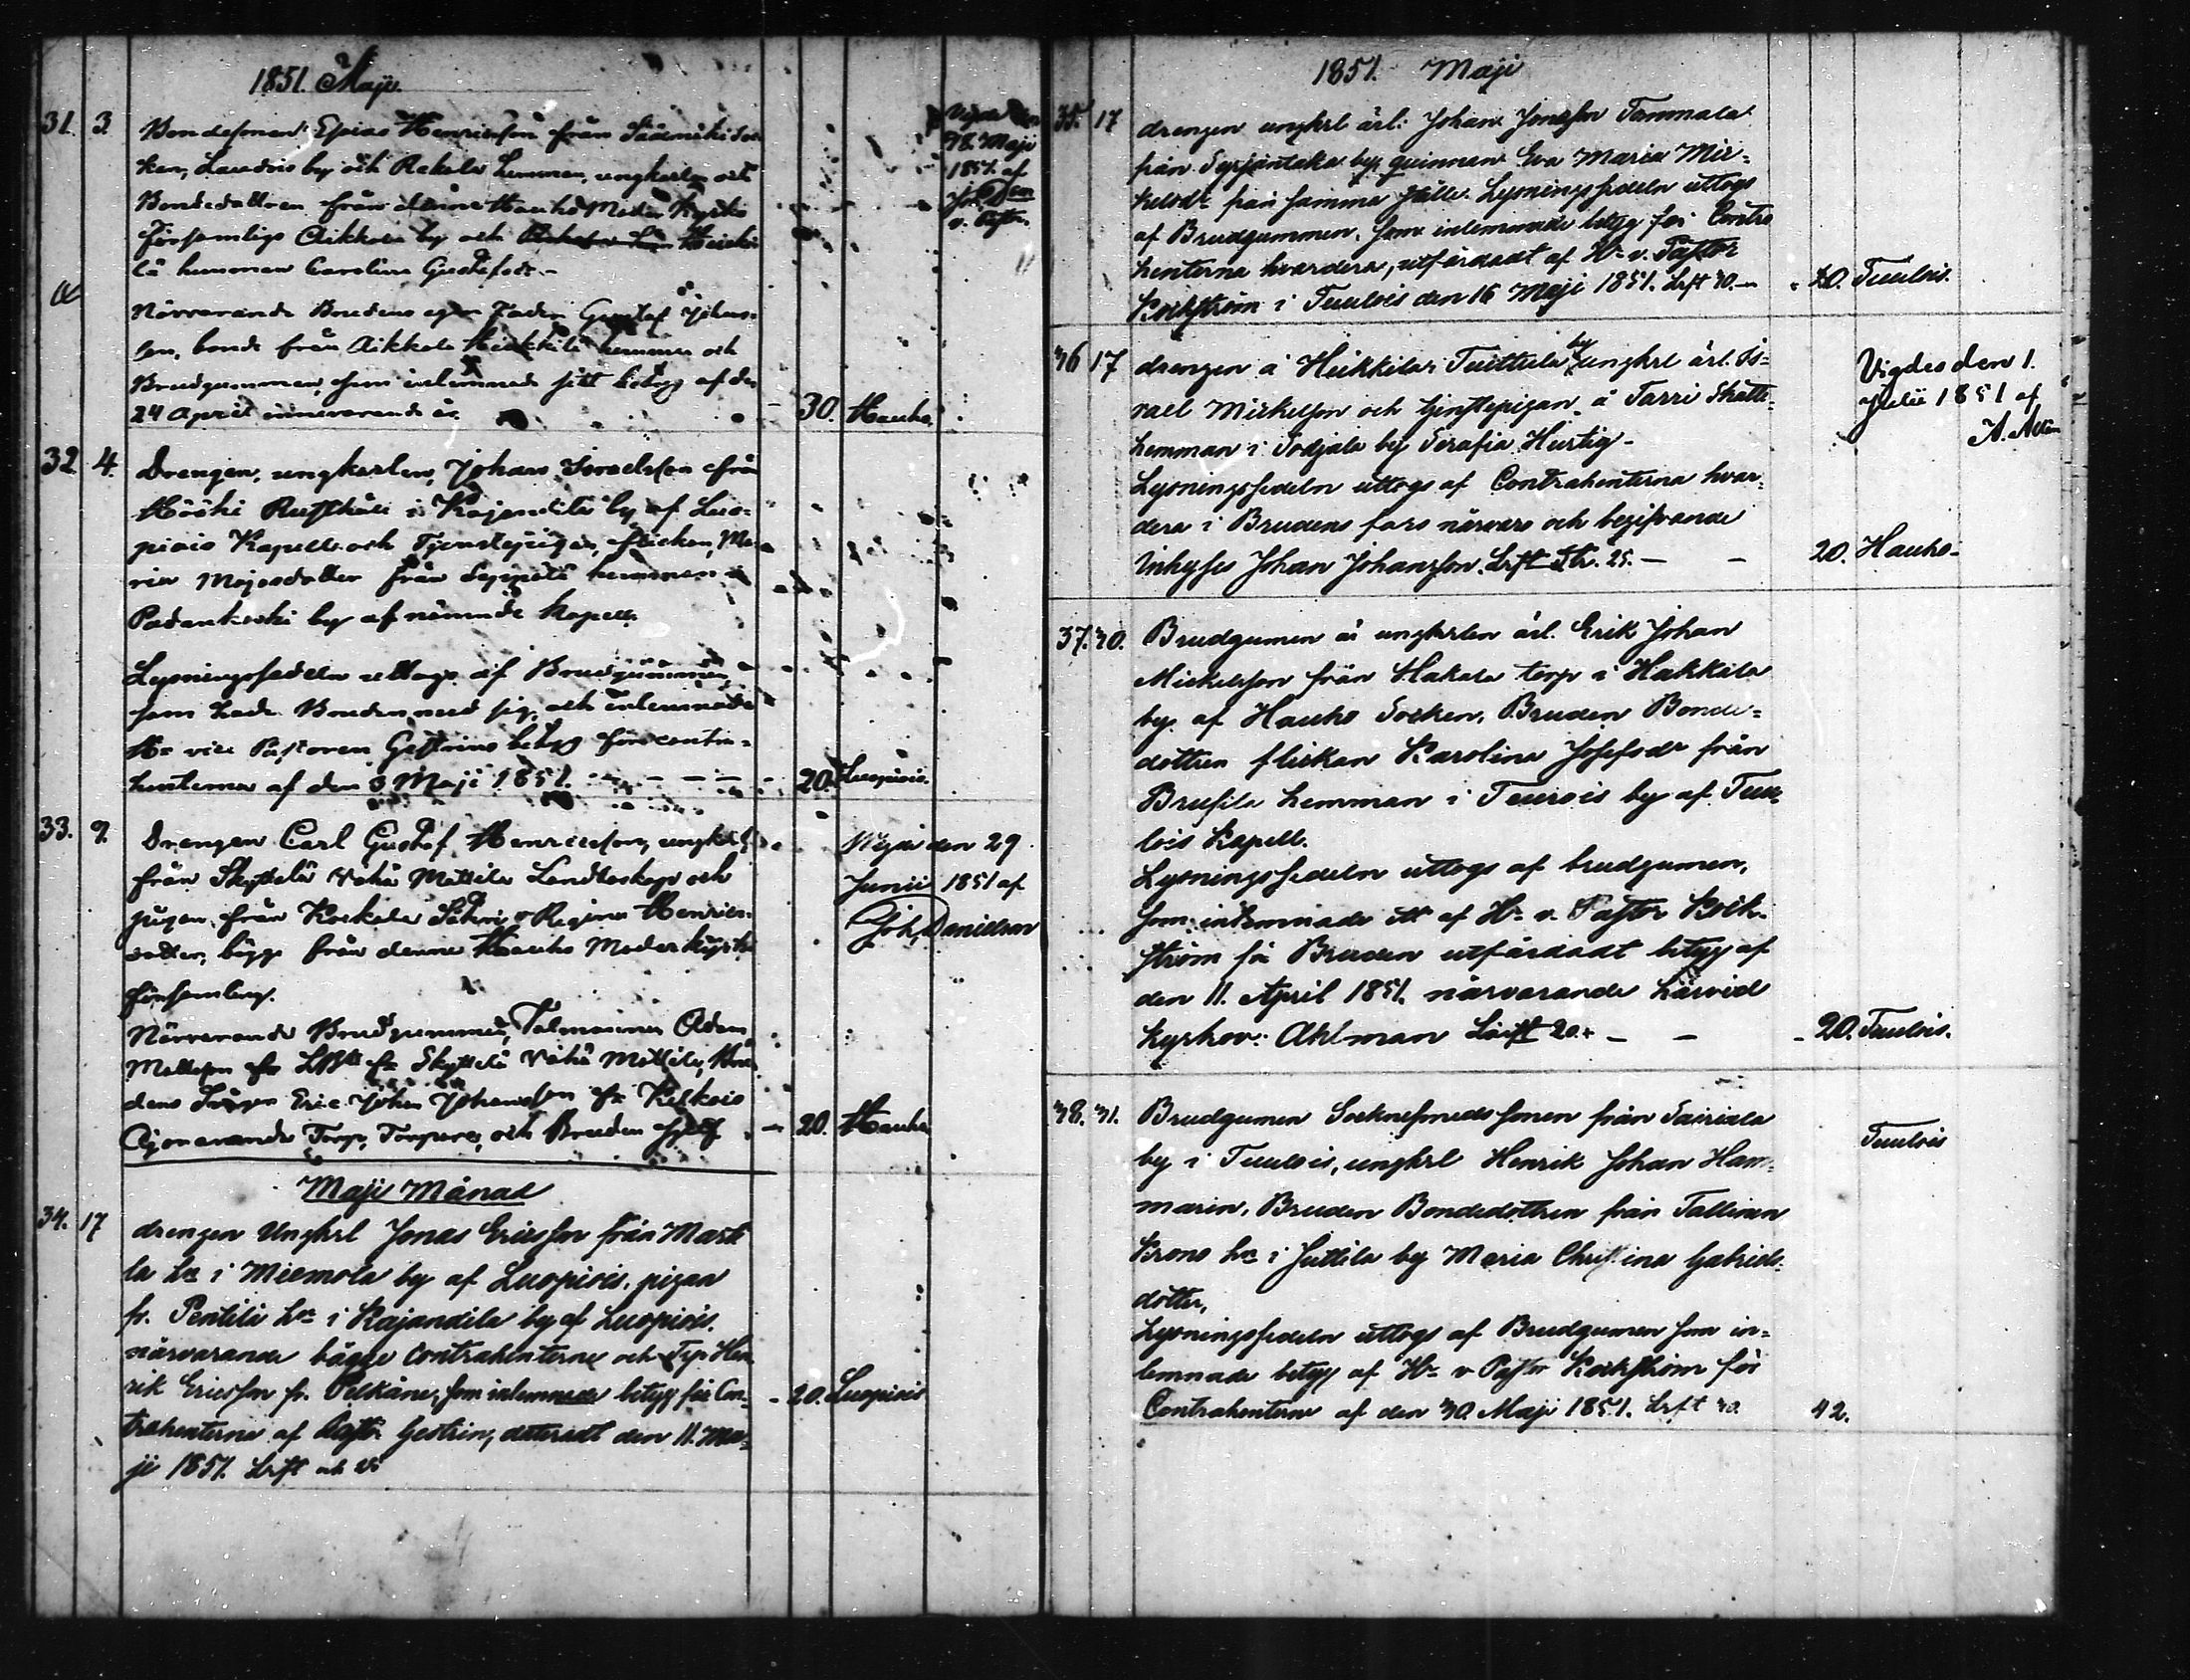 1851. Maji
31. 3. Bondesonen Esias Henricsson från Säämäki soc
ken, by och Rekola hemman, ungkarlen och
Bondedottren från denna Hauho Moder kyrko
församlings Aikkala by och Heikki
lä hemman Carolina Gustafsdr.
Närvarande Brudens egen Fader Gustaf Johans-
son, bonde från Aikkala Heikkilä hemman och
Brudgummen, som inlemnade sitt betyg af den
24 April innevarande år. 30. Hauho
Vigde den
28. Maji
1851. af
v. Pastor
32. 4. Drengen, ungkarlen, Johan Israelsson från
Rusthåll i Kajandila by af Luo-
piois Kapell och Tjenstepigan, flickan, Ma-
ria Majasdotter från Seppälä hemman i
Padankoski by af nämnde kapell.
Lysningssedeln uttogs af Brudgummen,
som hade Bruden med sig, och inlemnade
Hr vice Pastoren Gestrins betyg för contra-
henterna af den 3 Maji 1851. 20. Luopiois.
33. 9. Drengen Carl Gustaf Henricsson, ungkarl
från Skyttelä Vähä Mattila Landboskap och
pigan från Koskela Regina Henrics-
dotter, bägge från denna Hauho Moderkyrko
församling.
Närvarande Brudgummen, Talmannen Adam
Mattsson fr Skyttelä Vähä Mattila, Bru-
dens Svåger Eric Johan Johansson fr Kelkois
Torp, Torpare, och Bruden sjelf 20. Hauho
Vigde den 29
Junii 1851 af
Joh. Danielson
Maji Månad
34. 17 drengen Ungkrl Jonas Ericsson från Mark
la Hn i Miemola by af Luopiois, pigan
fr. Pentilä Hn i Kajandila by af Luopiois.
närvarande bägge Contrahenterne och Hen
rik Ericsson fr. Pelkäne, som inlemnade betyg för Con-
trahenterna af Pastor Gestrin, dateradt den 11. Ma-
ji 1851. 20. Luopiois
1851. Maji
35. 17 drengen ungkrl ärl. Johan Jonasson Tommola
från Syrjäntaka by, qvinnan Eva Maria Mic-
kelsdr från samma ställe. Lysningssedeln uttogs
af Brudgummen, som inlemnade betyg för Contra
henterna hvardera, utfärdadt af Hr v. Pastor
Bockström i Tuulois den 16 Maji 1851. 20. Tuulois.
36 17 drengen å Heikkilä Tuittula by ungkrl ärl. Is-
rael Mickelson och tjenstepigan å Tarri Skatte-
hemman i Sodjala by Serafia Hurtig.
Lysningssedeln uttogs af Contrahenterna hvar-
dera i Brudens fars närvaro och begifvande
Inhyses Johan Johansson. 20. Hauho.
Vigdes den 1.
Julii 1851 af
37. 30. Brudgumen är ungkarlen ärl. Erik Johan
Mickelsson från Hakala torp i Hakkala
by af Hauho Socken, Bruden Bonde-
dottren flickan Karolina Josefsdr från
Brusila hemman i Teurois by af Tuu
lois Kapell.
Lysningssedeln uttogs af brudgumen,
som inlemnade ett af Hr v. Pastor Bock-
ström för Bruden utfärdadt betyg af
den 11. April 1851. närvarande härvid
kyrkov. Ahlman 20. Tuulois.
38. 31. Brudgumen Socknesmeds sonen från Sairiala
by i Tuulois, ungkrl Henrik Johan Ham-
marin, Bruden Bondedottren från Tallinen
Krono hn i Juttila by Maria Christina Gabriels-
dotter,
Lysningssedeln uttogs af Brudgumen som in-
lemnade betyg af Hr v Pastor Bockström för
Contrahenterne af den 30. Maji 1851. 42.
Tuulois